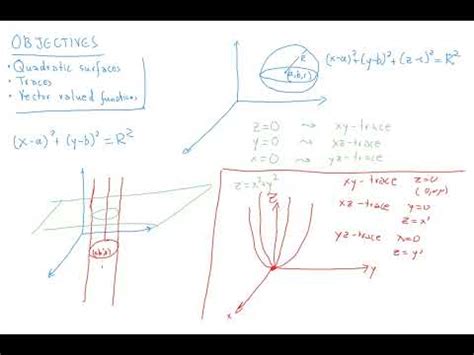 OBJECTIVES
• Quadratic surfaces
• Traces
• Vector valued functions
(x-a)²+(y-b)²=R²
R
(a,b,c)
(x-a)²+(y-b)²+(z-c)²=R²
z=0 ⇝ xy-trace
y=0 ⇝ xz-trace
x=0 ⇝ yz-trace
(a,b)
z=x²+y²
z
y
x
xy-trace z=0
(0,0,0)
xz-trace y=0
z=x²
yz-trace x=0
z=y²